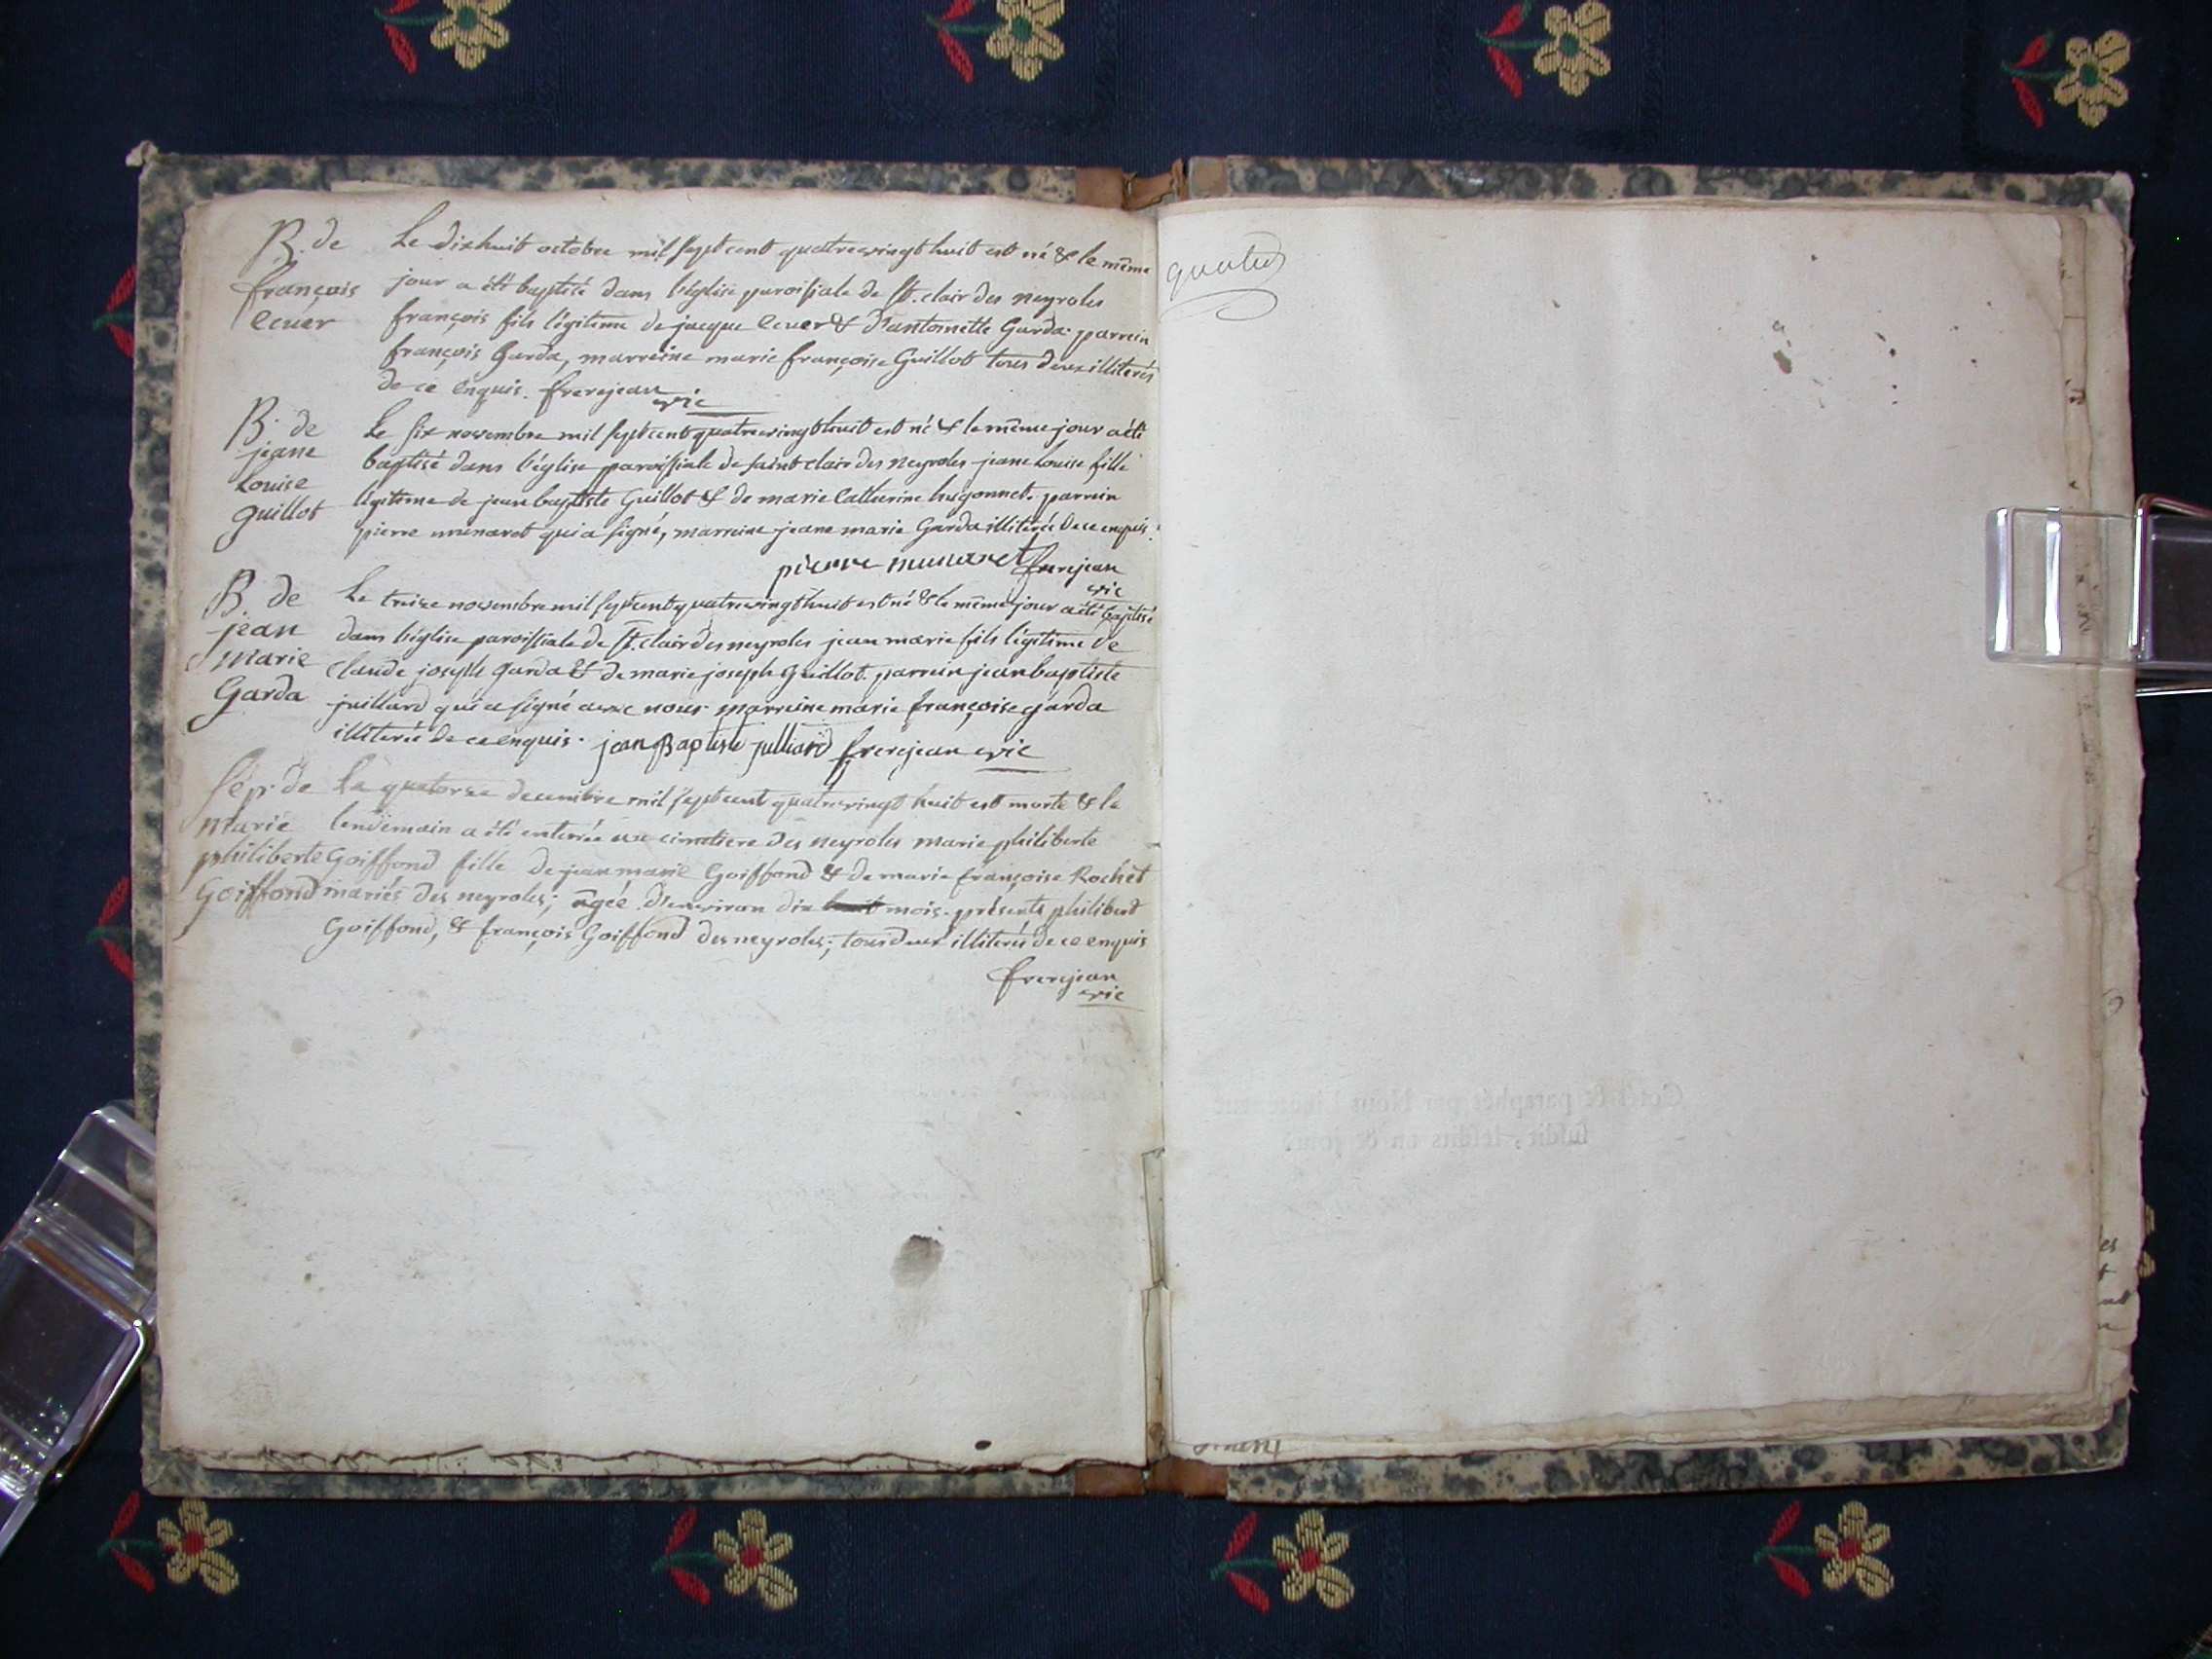 B. de
françois
Ecuer
Le dixhuit octobre mil sept cent quatrevingt huit est né & le même
jour a été baptisé dans l'église paroissiale de St. clair des neyroles
françois fils légitime de jacque Ecuer & d'antoinette Garda. parrein
françois Garda, marreine marie françoise Guillot tous deux illiterés
de ce enquis. frerejean
vic
B. de
jeane
Louise
guillot
Le six novembre mil sept cent quatrevingt huit est né & le même jour a été
baptisé dans l'église paroissiale de saint clair des neyroles jeane Louise fille
légitime de jean baptiste Guillot & de marie Catherine hugonnet. parrein
pierre munaret qui a signé, marreine jeane marie Garda illiterée de ce enquis.
pierre munaret frerejean
vic
B. de
jean
marie
Garda
Le treize novembre mil sept cent quatrevingt huit est né & le même jour a été baptisé
dans l'église paroissiale de St. clair des neyroles jean marie fils légitime de
claude joseph garda & de marie joseph Guillot. parrein jean baptiste
juillard qui a signé avec nous. marreine marie françoise garda
illiterée de ce enquis. jean Baptiste julliard frerejean vic
Sép. de
marie
philiberte
Goiffond
Le quatorze decembre mil sept cent quatrevingt huit est morte & le
lendemain a été enterrée au cimetiere des neyroles marie philiberte
Goiffond fille de jean marie Goiffond & de marie françoise Rochet
mariés des neyroles; agée d'environ dix huit mois. présents philibert
Goiffond, & françois Goiffond des neyroles; tous deux illiterés de ce enquis
frerejean
vic